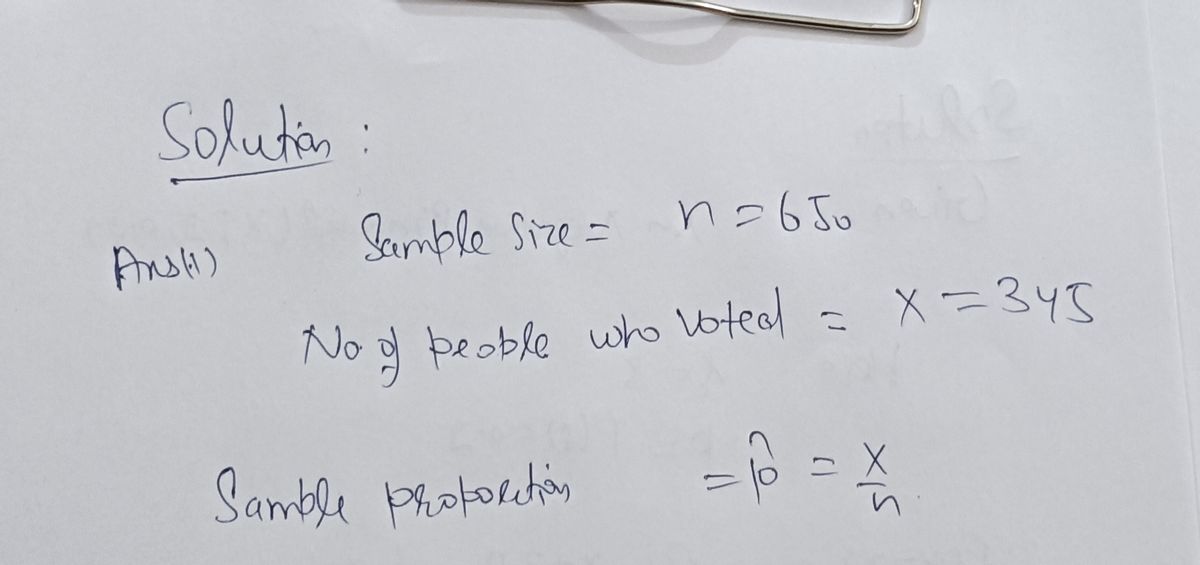 Solution :
Ans(1) Sample Size = n = 650
No of people who voted = x = 345
Sample proportion = p̂ = x/n.